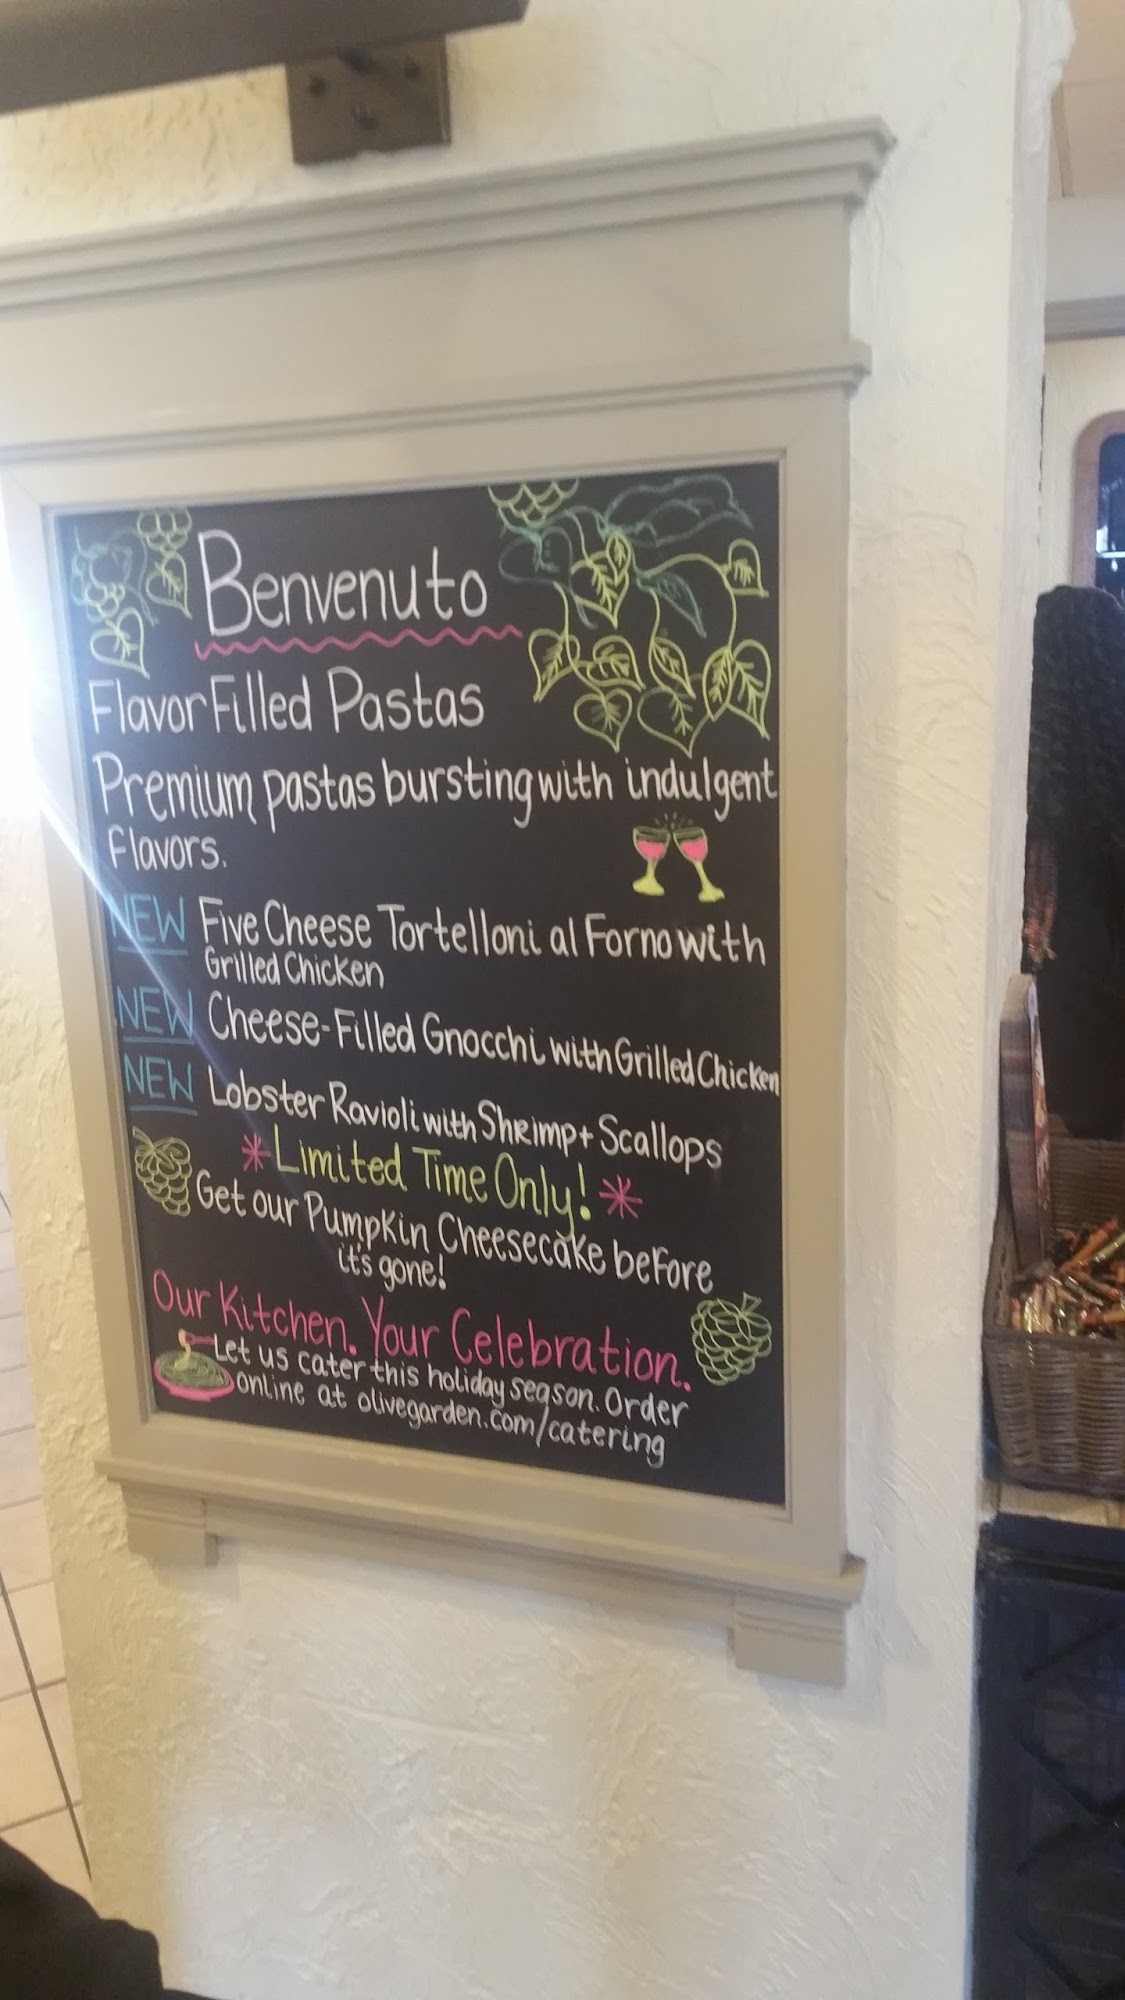 Benvenuto
Flavor Filled Pastas
Premium pastas bursting with indulgent
flavors.
NEW Five Cheese Tortelloni al Forno with
Grilled Chicken
NEW Cheese-Filled Gnocchi with Grilled Chicken
NEW Lobster Ravioli with Shrimp + Scallops
* Limited Time Only! *
Get our Pumpkin Cheesecake before
it's gone!
Our Kitchen. Your Celebration.
Let us cater this holiday season. Order
online at olivegarden.com/catering